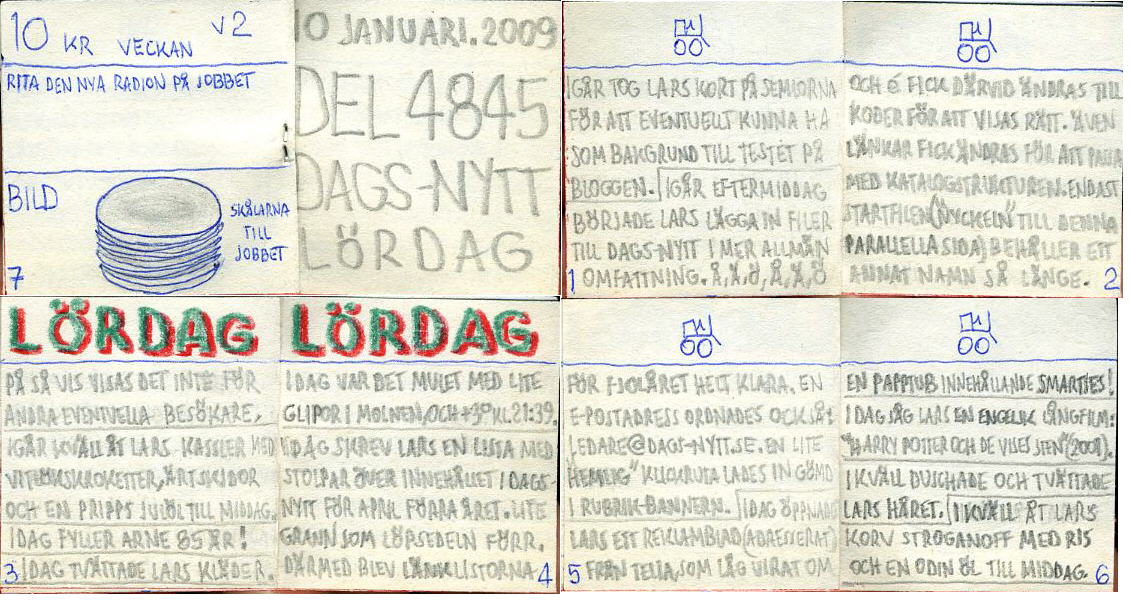 10 KR VECKAN V2
RITA DEN NYA RADION PÅ JOBBET
BILD
SKÅLARNA
TILL
JOBBET
7
10 JANUARI. 2009
DEL 4845
DAGS-NYTT
LÖRDAG
IGÅR TOG LARS KORT PÅ SEMLORNA
FÖR ATT EVENTUELLT KUNNA HA
SOM BAKGRUND TILL TESTET PÅ
BLOGGEN. IGÅR EFTERMIDDAG
BÖRJADE LARS LÄGGA IN FILER
TILL DAGS-NYTT I MER ALLMÄN
OMFATTNING. Å, Ä, Ö, Å, Ä, Ö
1
OCH é FICK DÄRVID ÄNDRAS TILL
KODER FÖR ATT VISAS RÄTT. ÄVEN
LÄNKAR FICK ÄNDRAS FÖR ATT PASSA
MED KATALOGSTRUKTUREN. ENDAST
STARTFILEN ("NYCKELN" TILL DENNA
PARALLELLA SIDA) BEHÅLLER ETT
ANNAT NAMN SÅ LÄNGE.
2
LÖRDAG
PÅ SÅ VIS VISAS DET INTE FÖR
ANDRA EVENTUELLA BESÖKARE.
IGÅR KVÄLL ÅT LARS KASSLER MED
VITLÖKSKROKETTER, ÄRTSKIDOR
OCH EN PRIPPS JULÖL TILL MIDDAG.
IDAG FYLLER ARNE 85 ÅR!
IDAG TVÄTTADE LARS KLÄDER.
3
LÖRDAG
IDAG VAR DET MULET MED LITE
GLIPOR I MOLNEN, OCH +3° KL. 21:39.
IDAG SKREV LARS EN LISTA MED
STOLPAR ÖVER INNEHÅLLET I DAGS-
NYTT FÖR APRIL FÖRRA ÅRET. LITE
GRANN SOM LÖPSEDELN FÖRR.
DÄRMED BLEV LÄNKLISTORNA
4
FÖR FJOLÅRET HELT KLARA. EN
E-POSTADRESS ORDNADES OCKSÅ:
LEDARE@DAGS-NYTT.SE. EN LITE
"HEMLIG" KLICKRUTA LADES IN GÖMD
I RUBRIK-BANNERN. IDAG ÖPPNADE
LARS ETT REKLAMBLAD (ADRESSERAT)
FRÅN TELIA, SOM LÅG VIRAT OM
5
EN PAPPTUB INNEHÅLLANDE SMARTIES!
IDAG SÅG LARS EN ENGELSK LÅNGFILM:
"HARRY POTTER OCH DE VISES STEN" (2001).
IKVÄLL DUSCHADE OCH TVÄTTADE
LARS HÅRET. IKVÄLL ÅT LARS
KORV STROGANOFF MED RIS
OCH EN ODIN ÖL TILL MIDDAG.
6